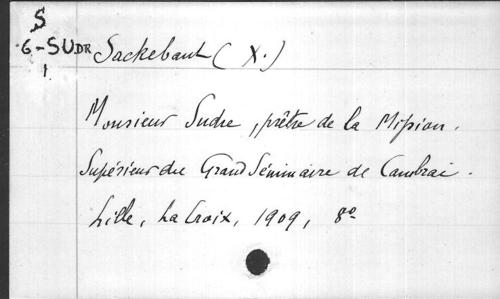 S
6-SUDR
1.
Sackebant (X.)
Monsieur Sudre, prêtre de la Mission.
Supérieur du Grand Séminaire de Cambrai.
Lille, La Croix, 1909, 8º